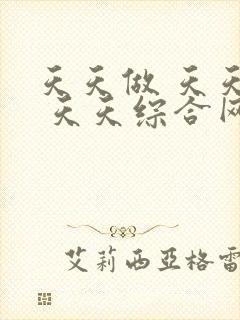 天天做 天天
天天综合网
艾莉西亚格雷